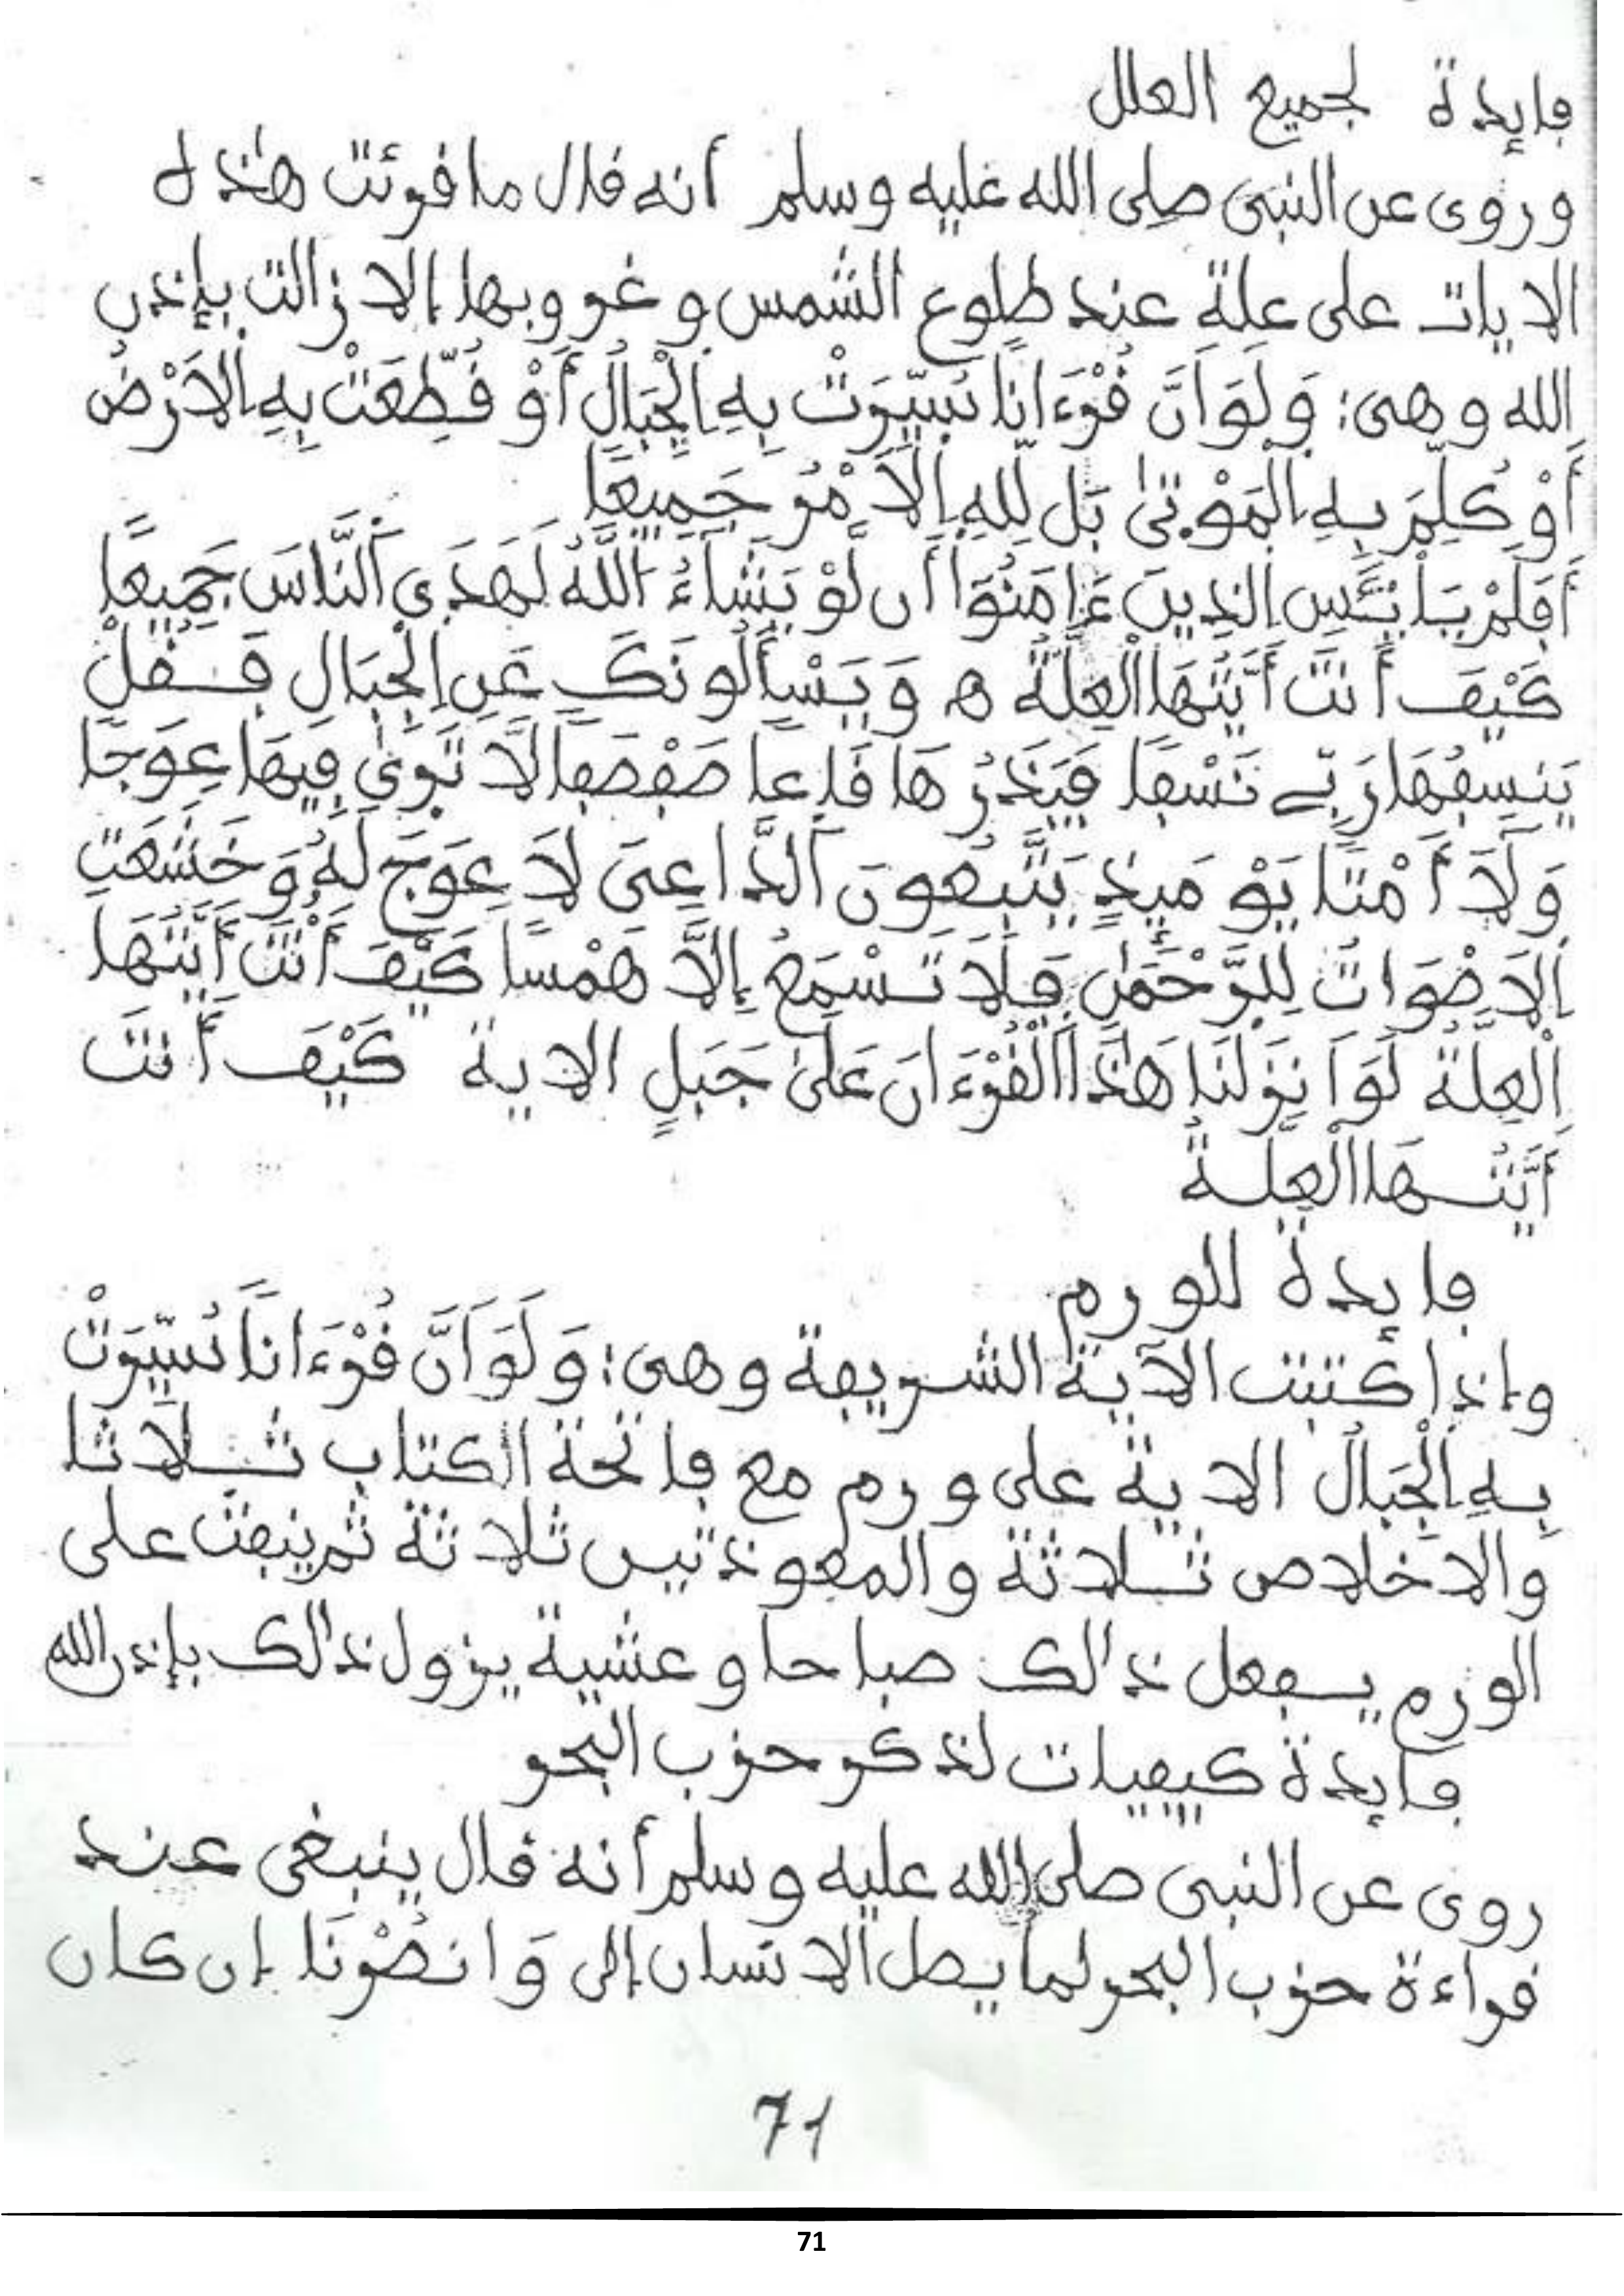 فايدة لجميع العلل
وروى عن النبى صلى الله عليه وسلم أنه قال ما قرئت هذه
الايات على علة عند طلوع الشمس وغروبها إلا زالت بإذن
الله وهى: وَلَوَ اَنَّ قُرْءَاناً سُيِّرَتْ بِهِ اِلْجِبَالُ أَوْ قُطِّعَتْ بِهِ اِلاَرْضُ
أَوْ كُلِّمَ بِهِ اِلْمَوْتىٰ بَل لِّلهِ اِلاَمْرُ جَمِيعًا
أَفَلَمْ يَاْيْـَٔسِ اِلذِينَ ءَامَنُوٓاْ أَن لَّوْ يَشَآءُ اَللَّهُ لَهَدَى اَلنَّاسَ جَمِيعًا
كَيْفَ أَنتَ أَيَّتُهَا اَلْعِلَّةُ ه وَيَسْـَٔلُونَكَ عَنِ اِلْجِبَالِ فَـقُلْ
يَنسِفُهَا رَبِّے نَسْفًا فَيَذَرُهَا قَاعًا صَفْصَفًا لاَّ تَرىٰ فِيهَا عِوَجًا
وَلَآ أَمْتًا يَوْمَئِذٍ يَتَّبِعُونَ اَلدَّاعِىَ لاَ عِوَجَ لَهُ وَخَشَعَتِ
اِلاَصْوَاتُ لِلرَّحْمَٰنِ فَلاَ تَسْمَعُ إِلاَّ هَمْسًا كَيْفَ أَنْتَ أَيَّتُهَا
اَلْعِلَّةُ لَوَ اَنزَلْنَا هَٰذَا اَلْقُرْءَانَ عَلَىٰ جَبَلٍ الاية كَيْفَ أَنتَ
أَيَّتُـهَا اَلْعِلَّـةُ
فايدة للورم
وإذا كتبت الآية الشريفة وهى: وَلَوَ اَنَّ قُرْءَاناً سُيِّرَتْ
بِهِ اِلْجِبَالُ الاية على ورم مع فاتحة الكتاب ثـلاثا
والاخلاص ثـلاثة والمعوذتين ثلاثة ثم ينفث على
الورم يـفعل ذالك صباحا وعشية يزول ذالك بإذن الله
فايدة كيفيات لذكر حزب البحر
روى عن النبى صلى الله عليه وسلم أنه قال ينبغى عند
قراءة حزب البحر لما يصل الانسان إلى وَانصُرْنَا إن كان
71
71